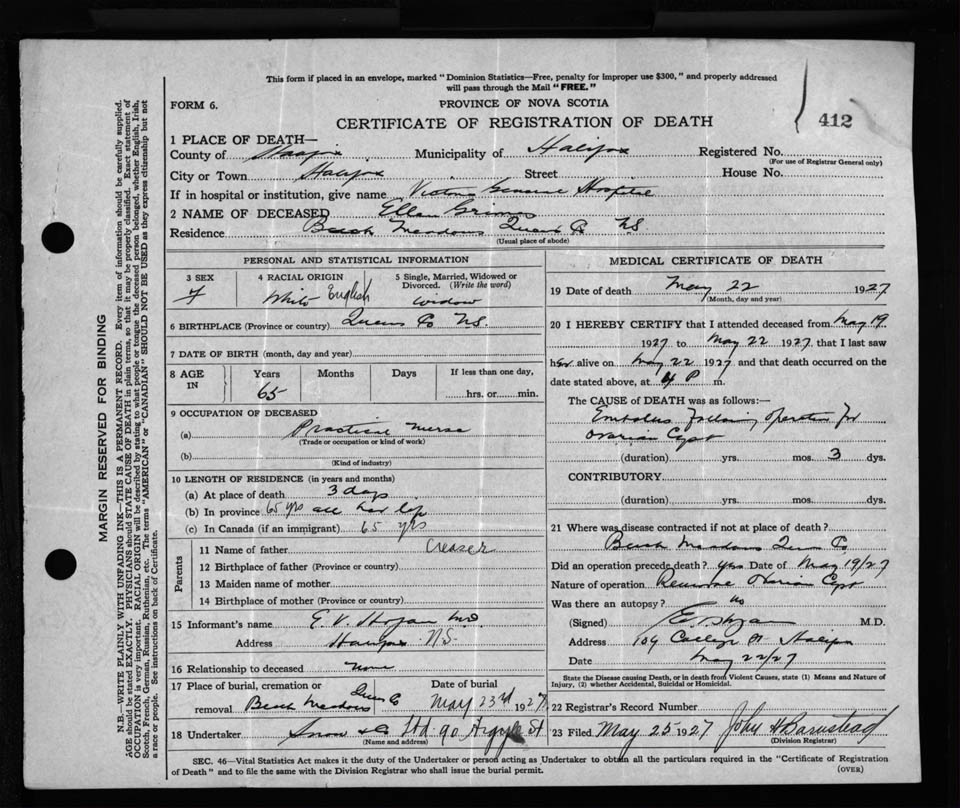 This form if placed in an envelope, marked "Dominion Statistics—Free, penalty for improper use $300," and properly addressed
will pass through the Mail "FREE."
FORM 6.
PROVINCE OF NOVA SCOTIA
412
CERTIFICATE OF REGISTRATION OF DEATH
1 PLACE OF DEATH—
County of Halifax Municipality of Halifax Registered No.
(For use of Registrar General only)
City or Town Halifax Street House No.
If in hospital or institution, give name Victoria General Hospital
2 NAME OF DECEASED Ellen Grimes
Residence Beach Meadows Queens Co NS.
(Usual place of abode)
PERSONAL AND STATISTICAL INFORMATION
3 SEX
F
4 RACIAL ORIGIN
White English
5 Single, Married, Widowed or
Divorced. (Write the word)
widow
6 BIRTHPLACE (Province or country) Queens Co NS.
7 DATE OF BIRTH (month, day and year)
8 AGE
IN
Years
65
Months
Days
If less than one day,
hrs. or min.
9 OCCUPATION OF DECEASED
(a) Practical nurse
(Trade or occupation or kind of work)
(b)
(Kind of industry)
10 LENGTH OF RESIDENCE (in years and months)
(a) At place of death 3 days
(b) In province 65 yrs all her life
(c) In Canada (if an immigrant) 65 yrs
Parents
11 Name of father Creaser
12 Birthplace of father (Province or country)
13 Maiden name of mother
14 Birthplace of mother (Province or country)
15 Informant's name E. V. Hogan MD
Address Halifax N.S.
16 Relationship to deceased None
17 Place of burial, cremation or
removal Beach Meadows Queens Co
Date of burial
May 23rd 1927
18 Undertaker Snow & Co Ltd 90 Argyle St
(Name and address)
MEDICAL CERTIFICATE OF DEATH
19 Date of death May 22 1927
(Month, day and year)
20 I HEREBY CERTIFY that I attended deceased from May 19
1927 to May 22 1927, that I last saw
her alive on May 22 1927 and that death occurred on the
date stated above, at 4 P m.
The CAUSE of DEATH was as follows:—
Embolus following operation for
Ovarian Cyst
(duration) yrs. mos. 3 dys.
CONTRIBUTORY.
(duration) yrs. mos. dys.
21 Where was disease contracted if not at place of death?
Beach Meadows Queens Co
Did an operation precede death? yes Date of May 19/27
Nature of operation Removal Ovarian Cyst
Was there an autopsy? no
(Signed) E. V. Hogan M.D.
Address 109 College St Halifax
Date May 22/27
State the Disease causing Death, or in death from Violent Causes, state (1) Means and Nature of
Injury, (2) whether Accidental, Suicidal or Homicidal.
22 Registrar's Record Number
23 Filed May 25 1927 John H Barnstead
(Division Registrar)
SEC. 46—Vital Statistics Act makes it the duty of the Undertaker or person acting as Undertaker to obtain all the particulars required in the "Certificate of Registration
of Death" and to file the same with the Division Registrar who shall issue the burial permit.
(OVER)
MARGIN RESERVED FOR BINDING
N.B.—WRITE PLAINLY WITH UNFADING INK—THIS IS A PERMANENT RECORD. Every item of information should be carefully supplied.
AGE should be stated EXACTLY. PHYSICIANS should STATE CAUSE OF DEATH in plain terms, so that it may be properly classified. Exact statement of
OCCUPATION is very important. RACIAL ORIGIN will be described by stating to what people or tongue the deceased person belonged, whether English, Irish,
Scotch, French, German, Russian, Ruthenian, etc. The terms "AMERICAN" or "CANADIAN" SHOULD NOT BE USED as they express citizenship but not
a race or people. See instructions on back of Certificate.